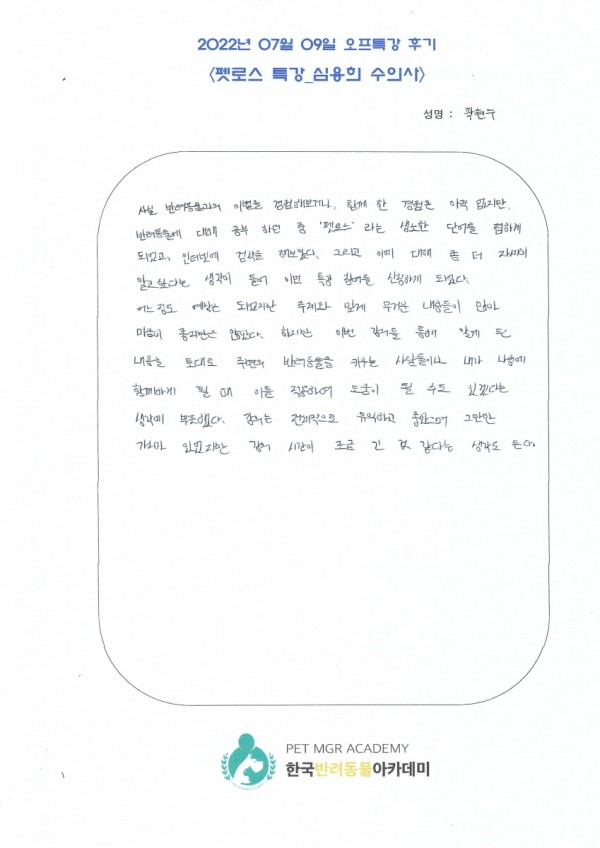 2022년 07월 09일 오프특강 후기
<펫로스 특강_심용희 수의사>
성명 : 곽현수
사실 반려동물과의 이별을 경험해보거나, 함께 한 경험은 아직 없지만,
반려동물에 대해 공부 하던 중 '펫로스' 라는 생소한 단어를 접하게
되었고, 인터넷에 검색을 해보았다. 그리고 이에 대해 좀 더 자세히
알고싶다는 생각이 들어 이번 특강 참여를 신청하게 되었다.
어느정도 예상은 되었지만 주제와 맞게 무거운 내용들이 많아
마음이 좋지만은 않았다. 하지만 이번 강의를 통해 알게 된
내용을 토대로 주변의 반려동물을 키우는 사람들이나 내가 나중에
함께하게 될 때 이를 적용하여 도움이 될 수도 있겠다는
생각에 뿌듯했다. 강의는 전체적으로 유익하고 그만한
가치가 있었지만 강의 시간이 조금 긴 것 같다는 생각도 든다.
PET MGR ACADEMY
한국반려동물아카데미